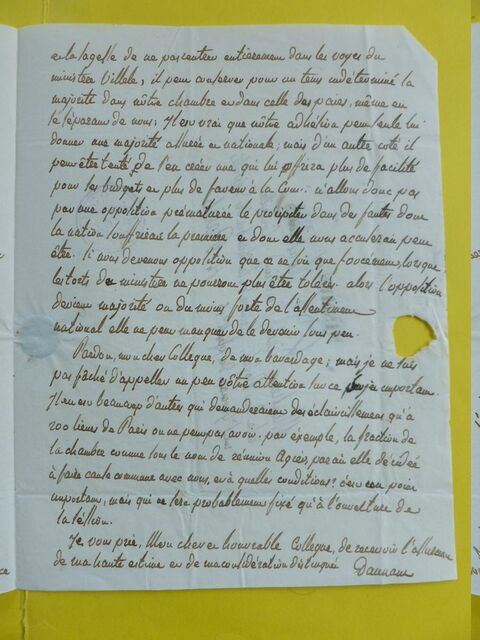 et la sagesse de ne pas entrer entièrement dans les voyes du
ministère Villèle, il peut conserver pour un tems indéterminé la
majorité dans nôtre chambre et dans celle des pairs, même en
se séparant de nous; Il est vrai que nôtre adhésion peut seule lui
donner une majorité assurée et nationale; mais d'un autre coté il
peut être tenté de s'en créer une qui lui offrira plus de facilité
pour les budgets et plus de faveur à la Cour. n'allons donc pas
par une opposition prématurée le précipiter dans des fautes dont
la nation souffrirait la première et dont elle nous accuserait peut
être. si nous devenons opposition que ce ne soit que forcément, lorsque
les torts du ministère ne pourront plus être tolérés. alors l'opposition
devient majorité ou du moins forte de l'assentiment
national elle ne peut manquer de le devenir sous peu.
Pardon, mon cher Collegue, de mon bavardage; mais je ne suis
pas fâché d'appeller un peu vôtre attention sur ce sujet important.
Il en est beaucoup d'autres qui demanderaient des éclaircissemens qu'à
200 lieues de Paris on ne peut pas avoir. par exemple, la fraction de
la chambre connue sous le nom de réunion Agier, parait elle décidée
à faire cause commune avec nous, et à quelles conditions? c'est un point
important, mais qui ne sera probablement fixé qu'à l'ouverture de
la session.
Je vous prie, Mon cher et honorable Collegue, de recevoir l'assurance
de ma haute estime et de ma considération distinguée